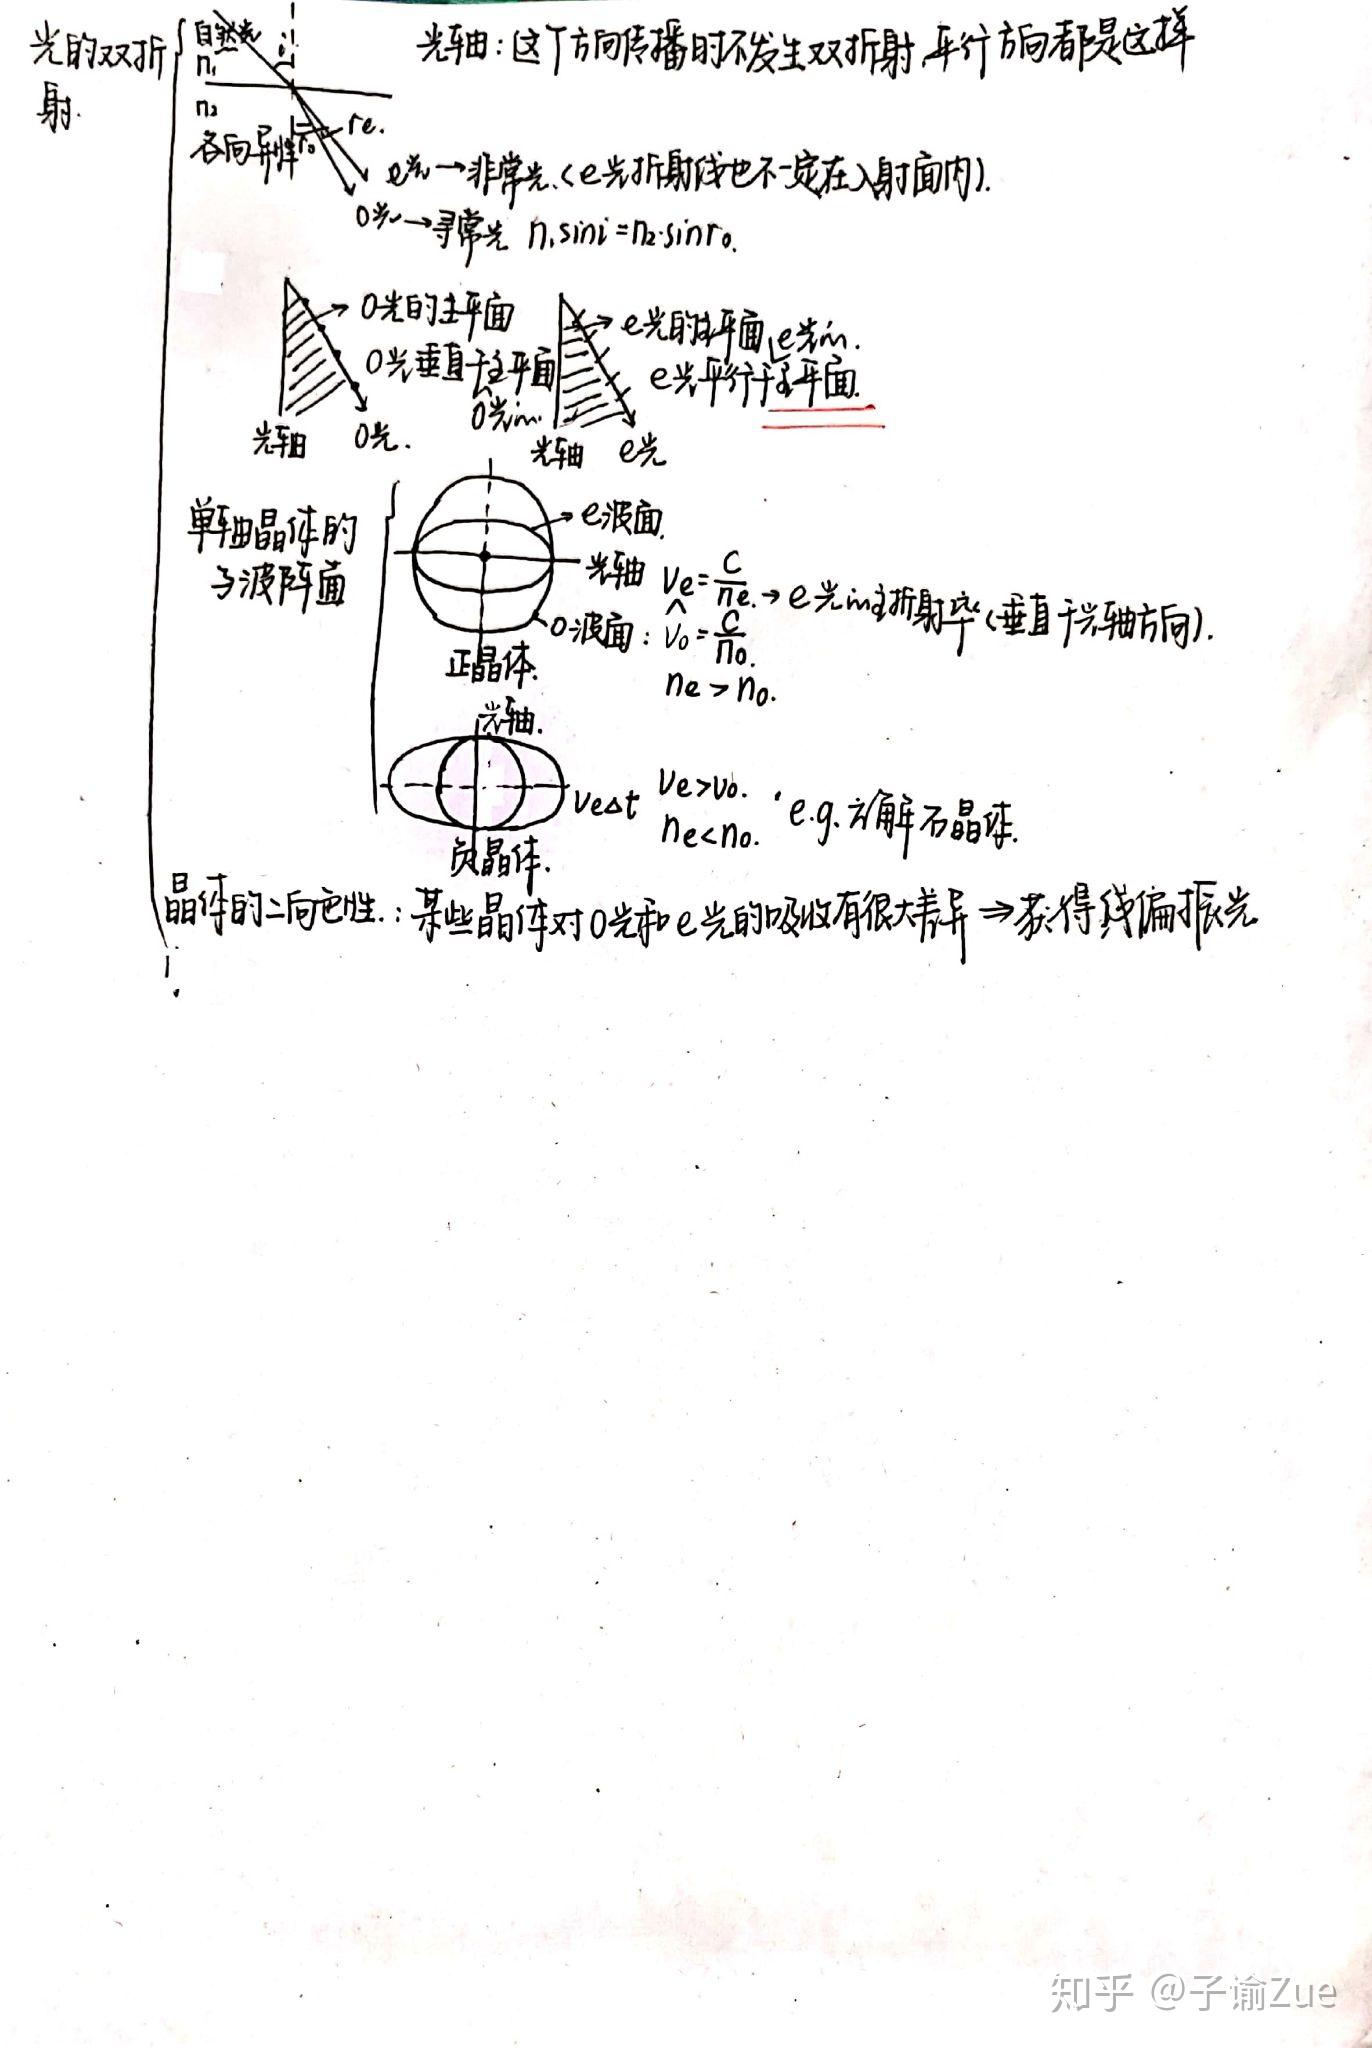 光的双折射.
自然光 i
n₁
n₂
各向异性 r₀ re.
光轴:这个方向传播时不发生双折射,平行方向都是这样
e光→非常光.(e光折射线也不一定在入射面内).
o光→寻常光 n₁sini=n₂·sinr₀.
o光的主平面
o光垂直于主平面
o光的.
光轴 o光.
e光的主平面
e光的.
e光平行于主平面.
光轴 e光
单轴晶体的
子波阵面
e波面.
光轴
o波面:
正晶体.
Ve=C/ne.→e光的主折射率(垂直于光轴方向).
^
Vo=C/no.
ne>no.
光轴.
VeΔt
负晶体.
Ve>Vo.
ne<no.
e.g.方解石晶体.
晶体的二向色性.:某些晶体对o光和e光的吸收有很大差异⇒获得线偏振光
知乎 @子谕Zue